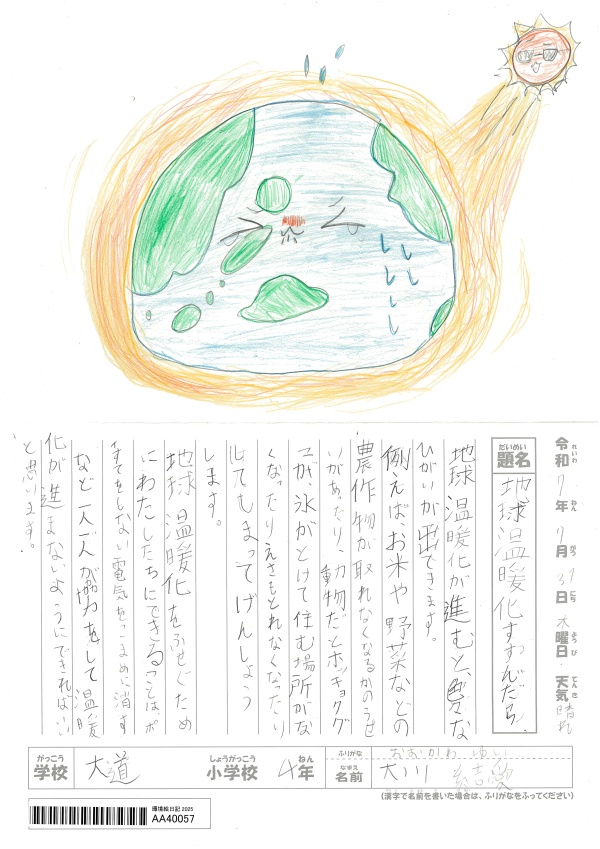 令和7年7月31日木曜日 天気晴れ
れいわ ねん がつ にち ようび てんき
だいめい
題名 地球温暖化すすんだら
地球温暖化が進むと、色々な
ひがいが出てきます。
例えば、お米や野菜などの
農作物が取れなくなるかのうせ
いがあったり、動物だとホッキョクグ
マが、氷がとけて住む場所がな
くなったりえさもとれなくなったり
してしまってげんしょう
します。
地球温暖化をふせぐため
にわたしたちにできることはポ
イすてをしない電気をこまめに消す
など一人一人が協力をして温暖
化が進まないようにできればいい
と思います。
がっこう しょうがっこう ねん ふりがな おおかわ ゆい
学校 大道 小学校 4年 なまえ 名前 大川
(漢字で名前を書いた場合は、ふりがなをふってください)
環境絵日記 2025
AA40057